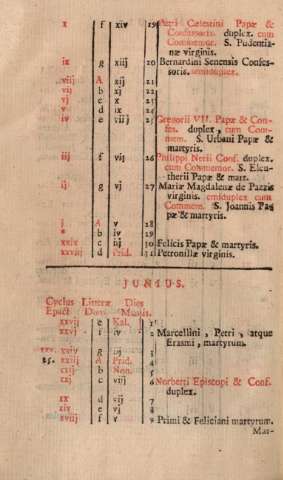 x f xiv 19 Petri Cælestini Papæ &
Confessoris. duplex. cum
Commemor. S. Pudentia-
næ virginis.
ix g xiij 20 Bernardini Senensis Confes-
soris. semiduplex.
viij A xij 21
vij b xj 22
vj c x 23
v d ix 24
iv e viij 25 Gregorii VII. Papæ & Con-
fes. duplex, cum Com-
mem. S. Urbani Papæ &
martyris.
iij f vij 26 Philippi Nerii Conf. duplex.
cum Commemor. S. Eleu-
therii Papæ & mart.
ij g vj 27 Mariæ Magdalenæ de Pazzis
virginis. semiduplex cum
Commem. S. Joannis Pa-
pæ & martyris.
j A v 28
* b iv 29
xxix c iij 30 Felicis Papæ & martyris.
xxviij d Prid. 31 Petronillæ virginis.
JUNIUS.
Cyclus Litteræ Dies
Epact. Dom. Mensis.
xxvij e Kal. 1
xxvj f iv 2 Marcellini, Petri, atque
Erasmi, martyrum.
xxv. xxiv g iij 3
25. xxiij A Prid. 4
xxij b Non. 5
xxj c viij 6 Norberti Episcopi & Conf.
duplex.
xx d vij 7
xix e vj 8
xviij f v 9 Primi & Feliciani martyrum.
Mar-